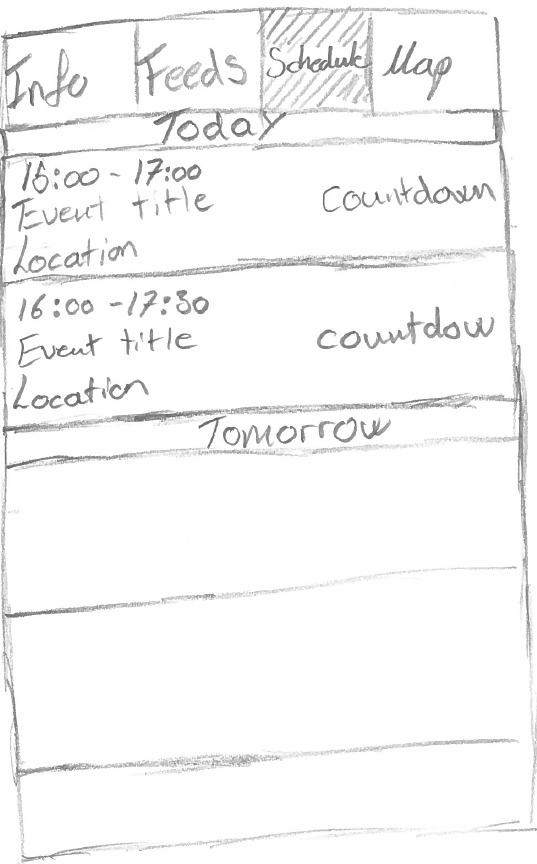 Info Feeds Schedule Map
Today
16:00 - 17:00
Event title
Location
Countdown
16:00 - 17:30
Event title
Location
countdow
Tomorrow